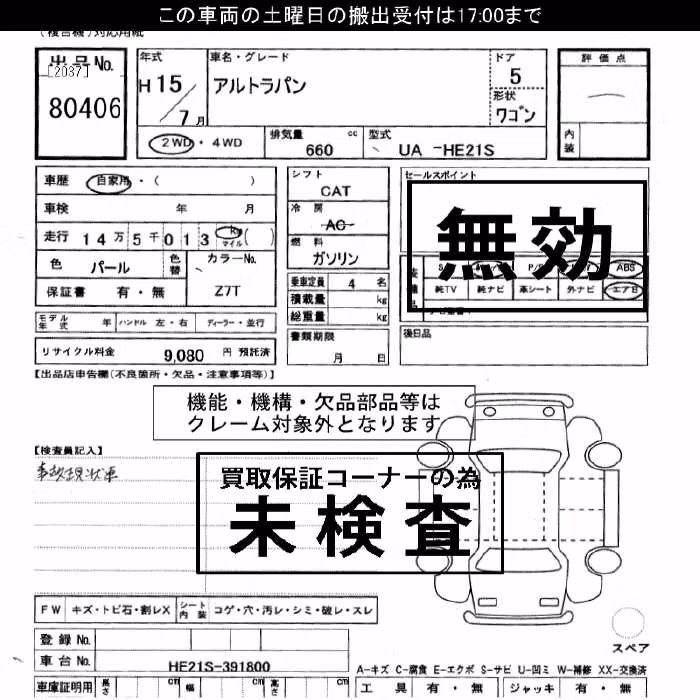 この車両の土曜日の搬出受付は17:00まで
(複合機)対応用紙
出品No.
[2037]
80406
年式
H 15 / 7 月
車名・グレード
アルトラパン
ドア
5
形状
ワゴン
評価点
内装
2WD・4WD
排気量 cc
660
型式
UA -HE21S
車歴 自家用・( )
車検 年 月
走行 14万5千013 km マイル ( )
色 パール
色替
カラーNo.
Z7T
保証書 有・無
シフト
CAT
冷房
AC
燃料
ガソリン
乗車定員 4 名
積載量 kg
総重量 kg
書類期限
月 日
セールスポイント
無効
ABS
純TV 純ナビ 革シート 外ナビ エアB
後日品
モデル年式 年 ハンドル 左・右 ディーラー・並行
リサイクル料金 9,080 円 預託済
【出品店申告欄(不良箇所・欠品・注意事項等)】
機能・機構・欠品部品等は
クレーム対象外となります
【検査員記入】
事故現状車
買取保証コーナーの為
未検査
FW キズ・トビ石・割レX シート内装 コゲ・穴・汚レ・シミ・破レ・スレ
スペア
登録No.
車台No. HE21S-391800
A-キズ C-腐食 E-エクボ S-サビ U-凹ミ W-補修 XX-交換済
車庫証明用 長さ cm 幅 cm 高さ cm
工具 有・無 ジャッキ 有・無